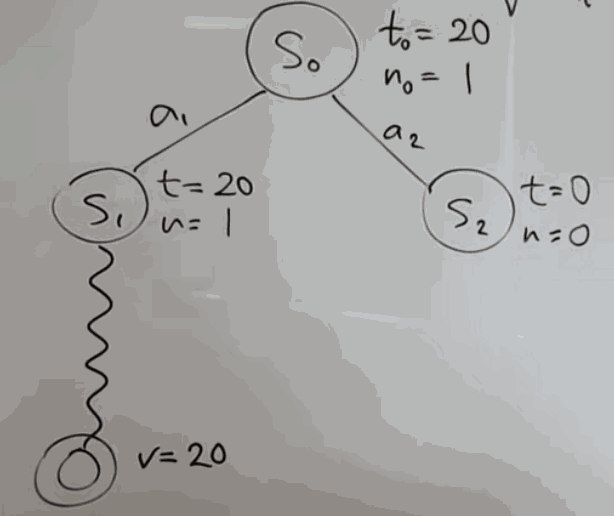 S₀
t₀ = 20
n₀ = 1
a₁
a₂
S₁
t = 20
n = 1
S₂
t = 0
n = 0
v = 20